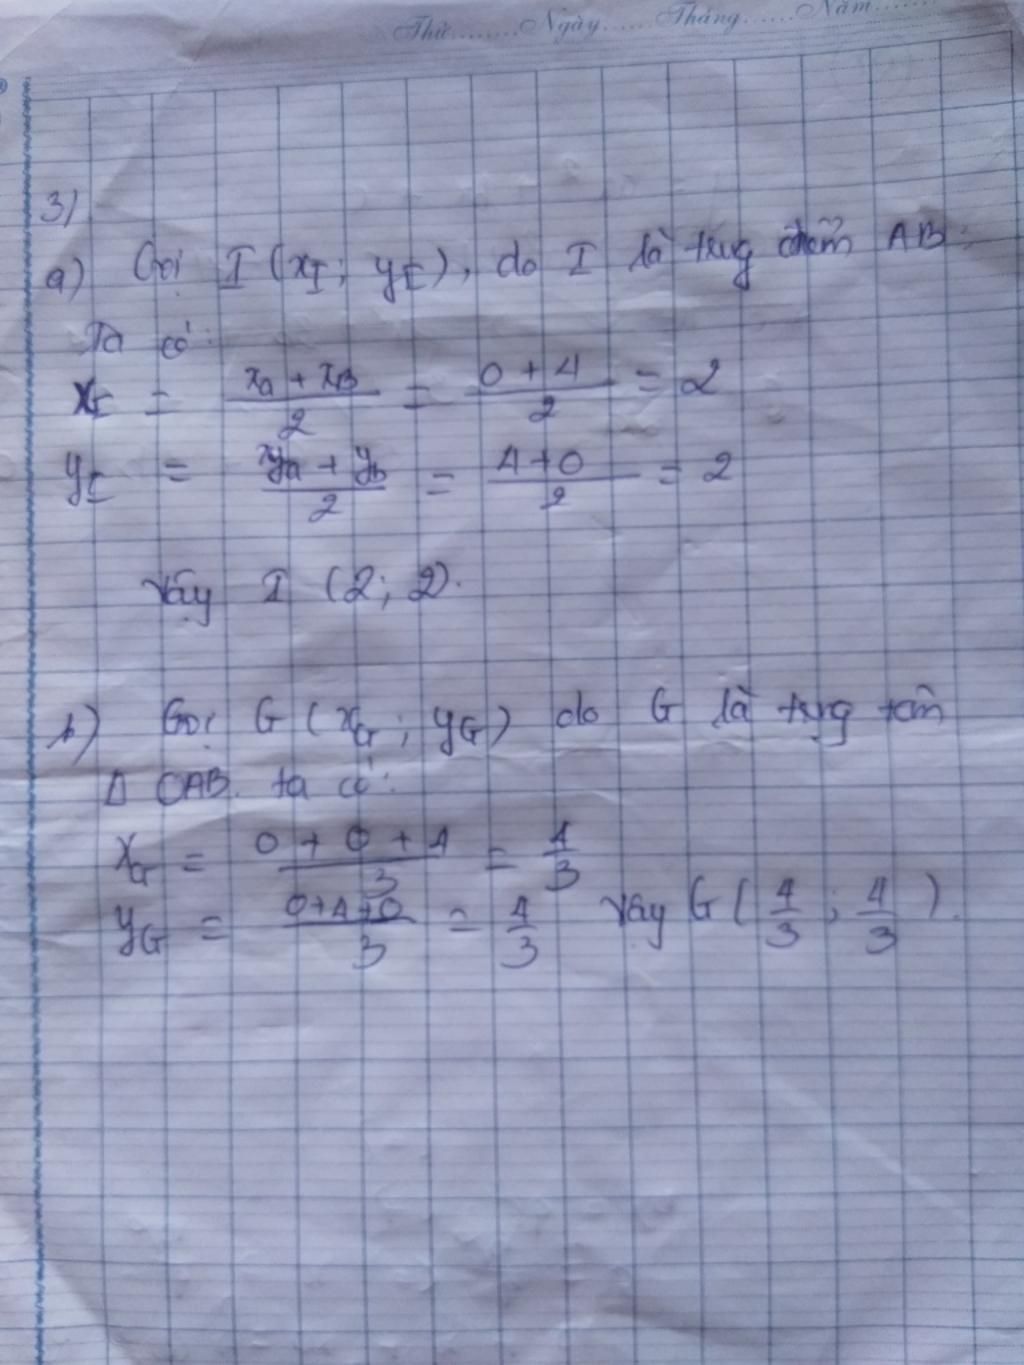 Thứ........Ngày......Tháng......Năm.......
3)
a) Gọi I (x_I ; y_I), do I là trug điểm AB:
Ta có:
x_I = (x_A + x_B)/2 = (0 + 4)/2 = 2
y_I = (y_A + y_b)/2 = (4+0)/2 = 2
Vậy I (2; 2).
b) Gọi G (x_G ; y_G) do G là trug tâm
Δ OAB. ta có:
x_G = (0 + 0 + 4)/3 = 4/3
y_G = (0+4+0)/3 = 4/3 Vậy G ( 4/3 ; 4/3 ).